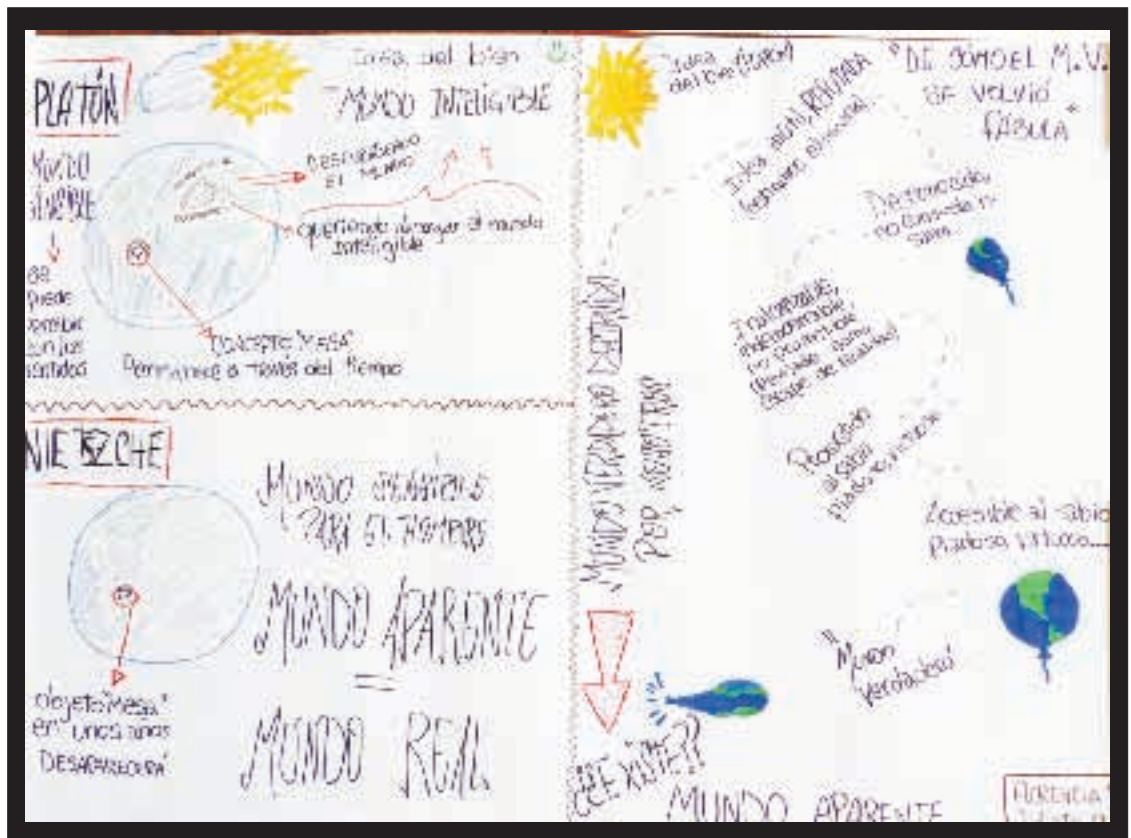 PLATÓN
Idea del bien
MUNDO INTELIGIBLE
MUNDO
SENSIBLE
se
puede
percibir
con los
sentidos
DESCUBRIENDO
EL MUNDO
queriendo alcanzar el mundo
inteligible
CONCEPTO "MESA"
Permanece a través del tiempo
NIETZCHE
MUNDO SENSIBLE
PARA EL HOMBRE
MUNDO APARENTE
=
MUNDO REAL
objeto "MESA"
en unos años
DESAPARECERÁ
"DE CÓMO EL M.V.
SE VOLVIÓ
FÁBULA"
Idea
del bien
Idea inútil, REFUTADA
Desconocido,
no consuela ni
salva
Inalcanzable,
indemostrable
no prometible
Promesa
al sabio
piadoso, virtuoso
Accesible al sabio
piadoso, virtuoso
"Mundo
verdadero"
MUNDO VERDADERO
POR
¿¿EXISTE??
MUNDO APARENTE
FLORENCIA